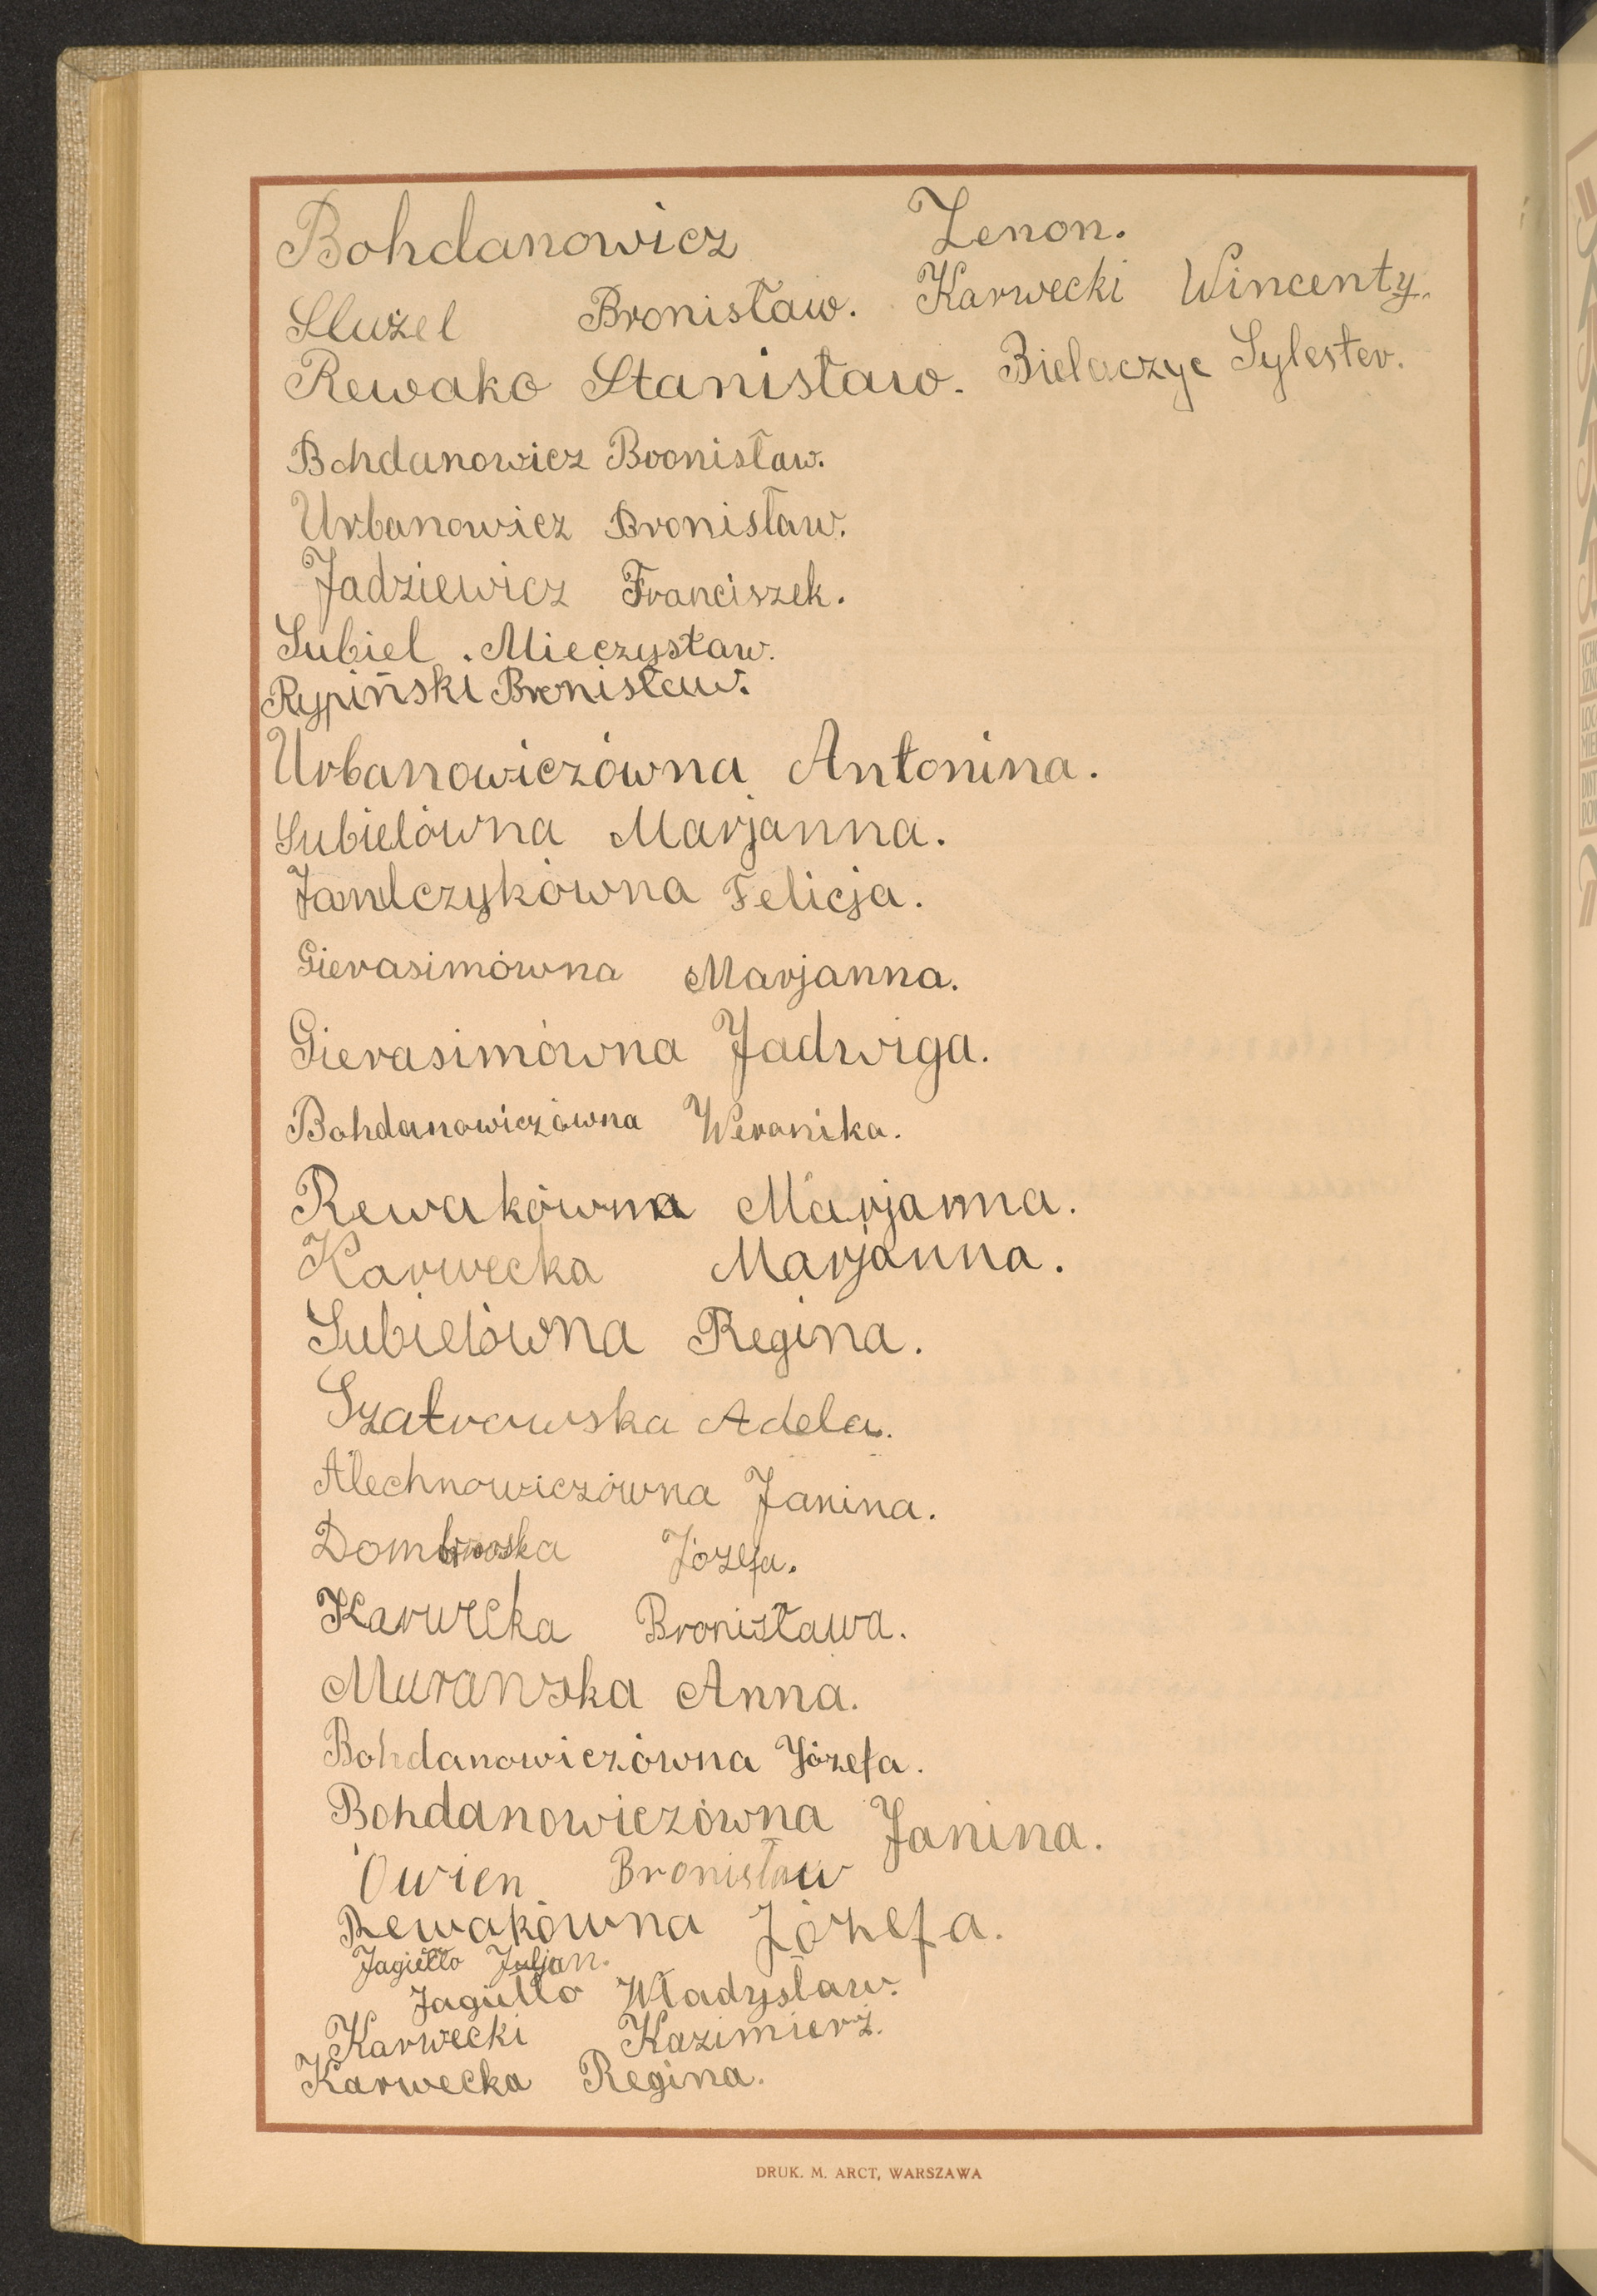 Bohdanowicz Zenon.
Służel Bronisław. Karwecki Wincenty.
Rewako Stanisław. Bielaczyc Sylester.
Bohdanowicz Bronisław.
Urbanowicz Bronisław.
Jadziewicz Franciszek.
Subiel. Mieczysław.
Rypiński Bronisław.
Urbanowiczówna Antonina.
Subielówna Marjanna.
Felicja.
Gierasimówna Marjanna.
Gierasimówna Jadwiga.
Bohdanowiczówna Weronika.
Rewakówna Marjanna.
Karwecka Marjanna.
Subielówna Regina.
Szatrowska Adela.
Alechnowiczówna Janina.
Dombrwoska Józefa.
Karwecka Bronisława.
Murawska Anna.
Bohdanowiczówna Józefa.
Bohdanowiczówna Janina.
Owien Bronisław
Rewakówna Józefa.
Jagiełło Juljan.
Jagiełło Władysław.
Karwecki Kazimierz.
Karwecka Regina.
DRUK. M. ARCT, WARSZAWA